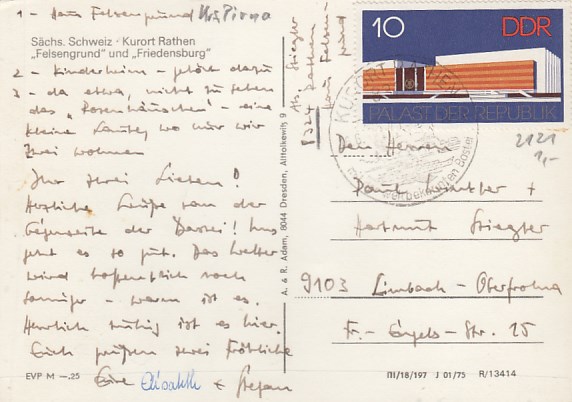 1 - Haus Felsengrund Krs Pirna
Sächs. Schweiz · Kurort Rathen
„Felsengrund" und „Friedensburg"
2 - Kinderheim - gehört dazu
3 - da etwa, nicht zu sehen
das „Rosenhäuschen" - eine
kleine wo nur wir
zwei wohnen
Ihr zwei Lieben!
Herzliche Grüße von der
Gegenseite der Bastei! Uns
geht es so gut. Das Wetter
wird hoffentlich noch
sonniger - warm ist es.
Herrlich ruhig ist es hier.
Euch grüßen zwei Fröhliche
Eure Elisabeth + Stefan
EVP M —.25
A. & R. Adam, 8044 Dresden, Altlolkewitz 9
Stiegler
8324 Rathen
Haus Felsen-
grund
10 DDR
PALAST DER REPUBLIK
KURORT RATHEN
2121
1,-
Den Herren
Paul +
Hartmut Stiegler
9103 Limbach-Oberfrohna
Fr.-Engels-Str. 15
III/18/197 J 01/75 R/13414